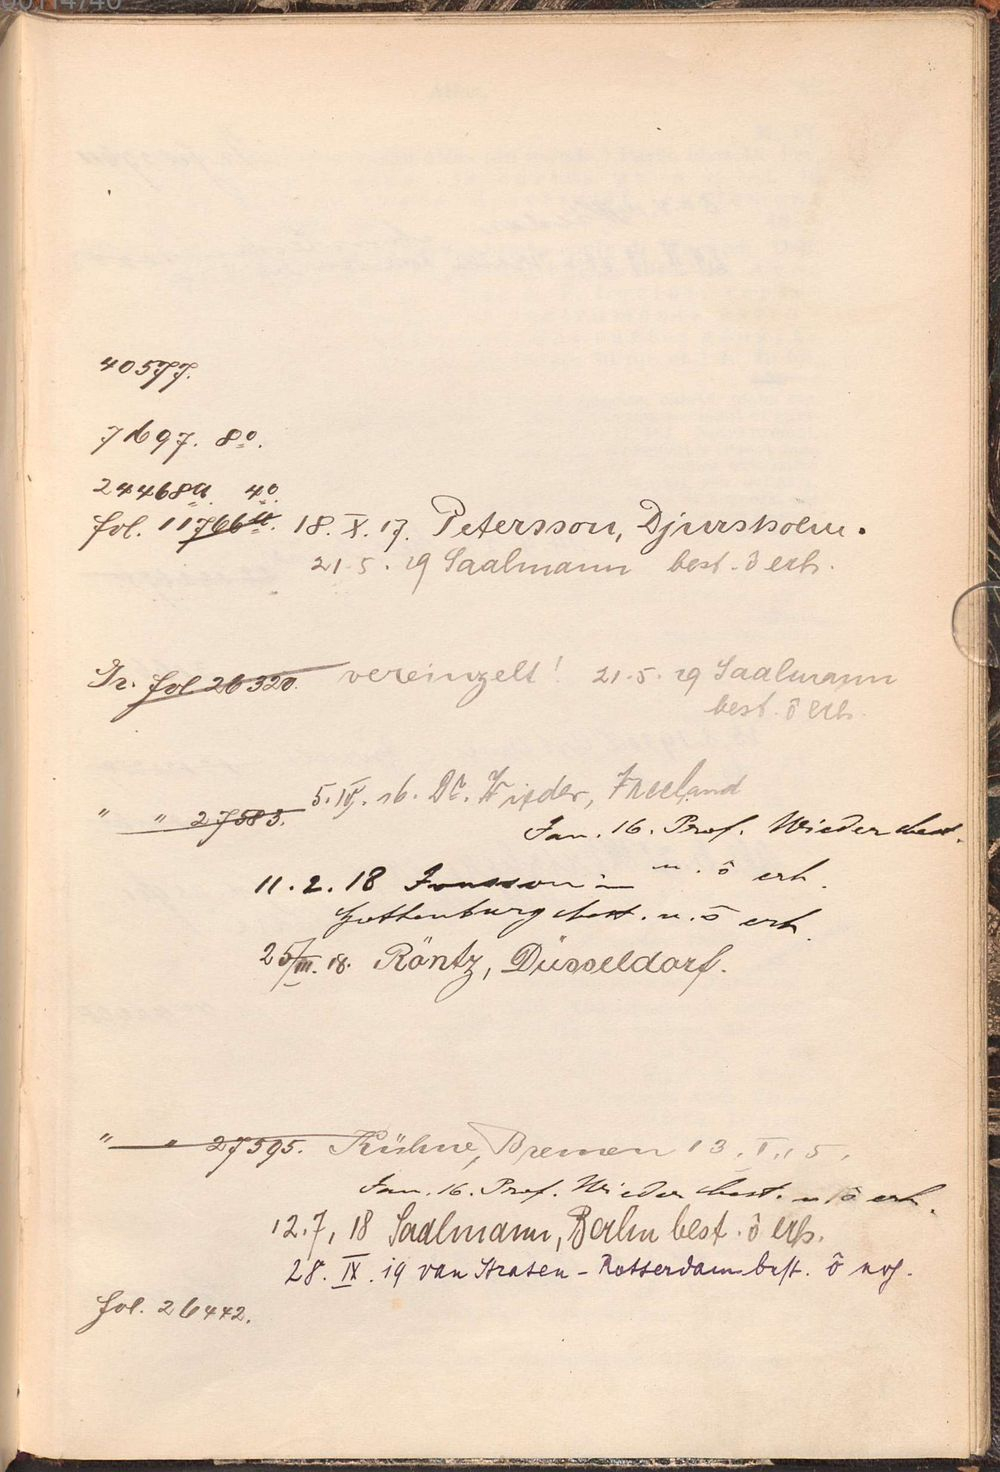 40577.
71697. 8o.
24468a. 4o
fol. 11766 18. X. 17. Petersson, Djursholm.
21.5.19 Saalmann best. ō erh.
Gr. fol 26320. vereinzelt! 21.5.19 Saalmann
best. ō erh.
5. IV. 16. Dr. Wieder, Freeland
" " 27583.
Jan. 16. Prof. Wieder best.
u. ō erh.
11.2.18 Jonsson in
Gothenburg best. u. ō erh.
25/III. 18. Röntz, Düsseldorf.
" " 27595. Kühne, Bremen 13. I. 15.
Jan. 16. Prof. Wieder best. u ō erh.
12.7.18 Saalmann, Berlin best. ō erh.
28. IX. 19 van Straten - Rotterdam best. ō
fol. 26442.